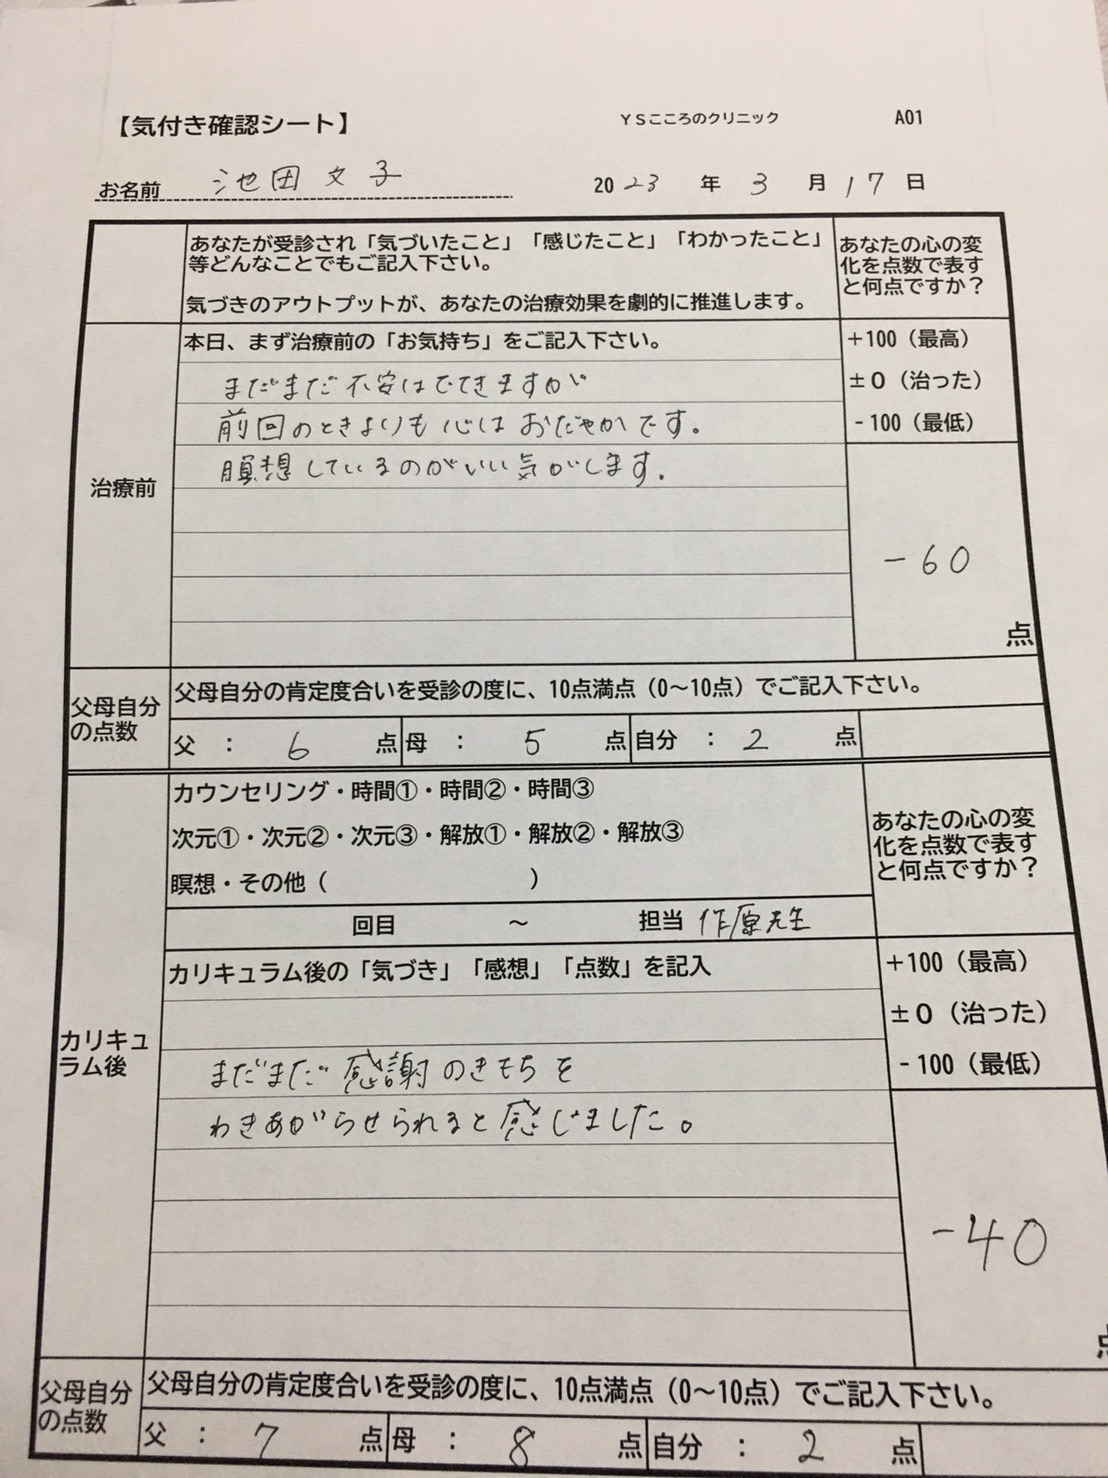 【気付き確認シート】 YSこころのクリニック A01
お名前 池田文子 2023年3月17日
あなたが受診され「気づいたこと」「感じたこと」「わかったこと」
等どんなことでもご記入下さい。
気づきのアウトプットが、あなたの治療効果を劇的に推進します。
あなたの心の変
化を点数で表す
と何点ですか？
治療前
本日、まず治療前の「お気持ち」をご記入下さい。
まだまだ不安はでてきますが
前回のときよりも心はおだやかです。
瞑想しているのがいい気がします。
+100（最高）
±0（治った）
-100（最低）
-60
点
父母自分
の点数
父母自分の肯定度合いを受診の度に、10点満点（0～10点）でご記入下さい。
父：6点 母：5点 自分：2点
カリキュ
ラム後
カウンセリング・時間①・時間②・時間③
次元①・次元②・次元③・解放①・解放②・解放③
瞑想・その他（ ）
回目 ～ 担当 作原先生
あなたの心の変
化を点数で表す
と何点ですか？
カリキュラム後の「気づき」「感想」「点数」を記入
まだまだ感謝のきもちを
わきあがらせられると感じました。
+100（最高）
±0（治った）
-100（最低）
-40
点
父母自分
の点数
父母自分の肯定度合いを受診の度に、10点満点（0～10点）でご記入下さい。
父：7点 母：8点 自分：2点